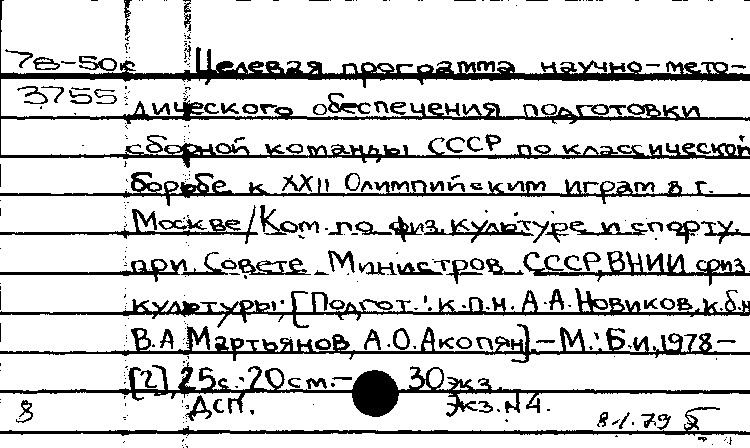 78-50к Целевая программа научно-мето-
3755 дического обеспечения подготовки
сборной команды СССР по классической
борьбе к XXII Олимпийским играм в г.
Москве/Ком. по физ. культуре и спорту
при Совете Министров СССР, ВНИИ физ.
культуры; [Подгот.: к.п.н. А.А. Новиков, к.б.н.
В.А. Мартьянов, А.О. Акопян].-М.: Б.и, 1978-
[2], 25с.; 20см.- 30экз.
8 ДСП. Экз. N4.
8-1.79